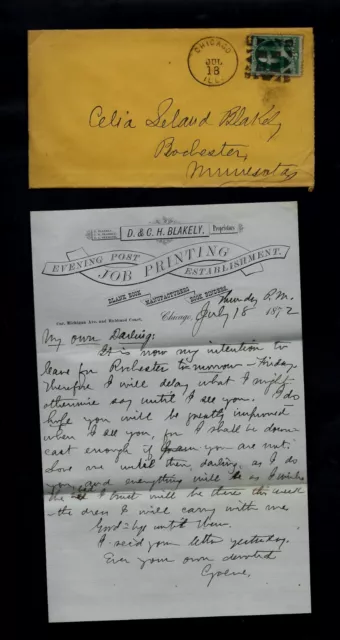 CHICAGO
JUL
18
ILL.
Celia Leland Blakely
Rochester,
Minnesota
D. & C. H. BLAKELY, Proprietors
EVENING POST JOB PRINTING ESTABLISHMENT.
BLANK BOOK MANUFACTURERS BOOK BINDERS
Cor. Michigan Ave. and Harmon Court,
Thursday P.M.
Chicago, July 18 1872
My own Darling:
It is now my intention to
leave for Rochester to-morrow - Friday
Therefore I will delay what I might
otherwise say until I see you. I do
hope you will be greatly improved
when I see you, for I shall be down-
cast enough if you are not.
Love me until then, darling, as I do
you, and everything will be as I wish
I trust will be there this week
- the dress I will carry with me
Good-bye until then.
I rec'd your letter yesterday.
Ever your own devoted